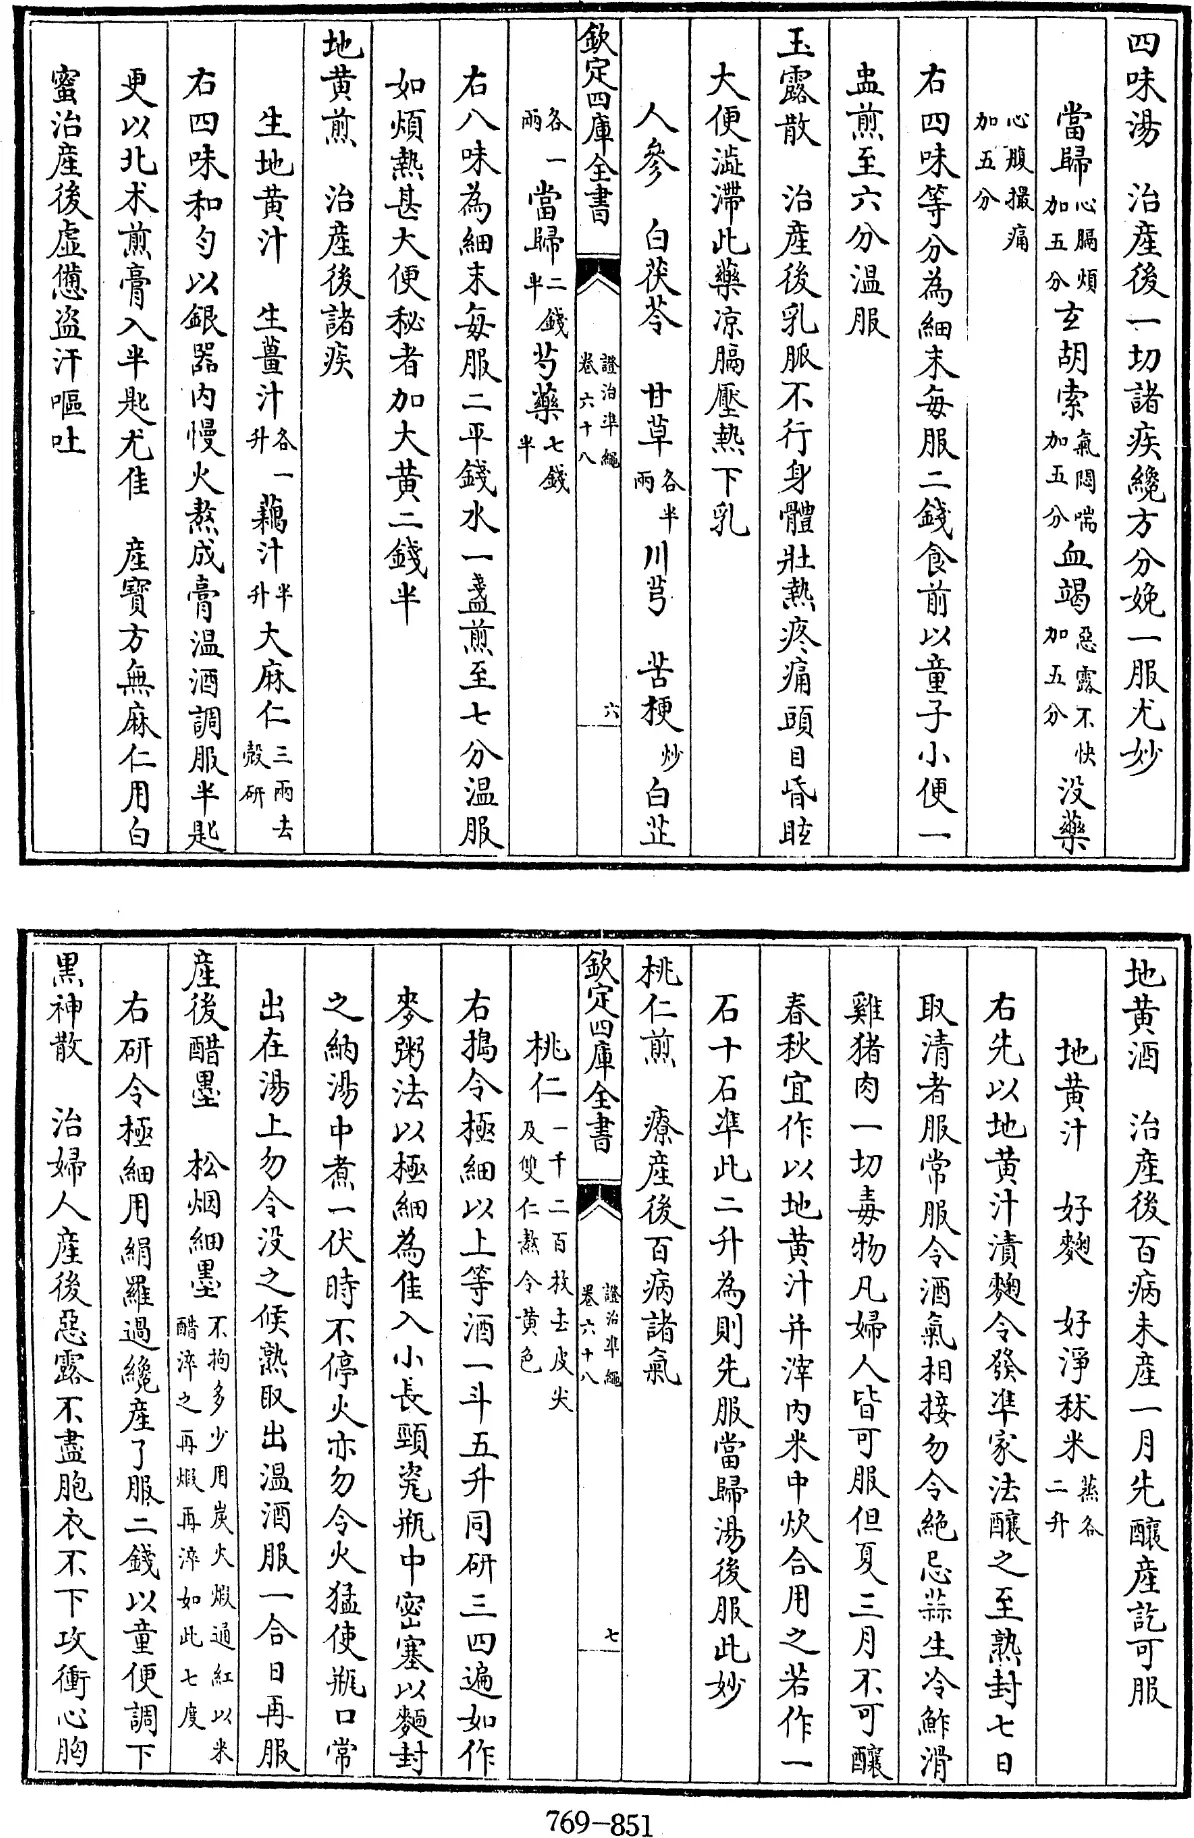 四味湯　治産後一切諸疾纔方分娩一服尤妙
當歸心膈煩加五分玄胡索氣悶喘加五分血竭惡露不快加五分没藥
心腹撮痛加五分
右四味等分為細末每服二錢食前以童子小便一
盅煎至六分温服
玉露散　治産後乳脈不行身體壯熱疼痛頭目昏眩
大便澁滯此藥凉膈壓熱下乳
人參　白茯苓　甘草各半兩川芎　苦梗炒白芷
欽定四庫全書
證治準繩
卷六十八
六
各一兩當歸二錢半芍藥七錢半
右八味為細末每服二平錢水一盞煎至七分温服
如煩熱甚大便秘者加大黄二錢半
地黄煎　治産後諸疾
生地黄汁　生薑汁各一升藕汁半升大麻仁三兩去殼研
右四味和勻以銀器内慢火熬成膏温酒調服半匙
更以北术煎膏入半匙尤佳　産寶方無麻仁用白
蜜治産後虚憊盗汗嘔吐
地黄酒　治産後百病未産一月先釀産訖可服
地黄汁　好麴　好淨秫米蒸各二升
右先以地黄汁漬麴令發準家法釀之至熟封七日
取清者服常服令酒氣相接勿令絶忌蒜生冷鮓滑
雞猪肉一切毒物凡婦人皆可服但夏三月不可釀
春秋宜作以地黄汁并滓内米中炊合用之若作一
石十石準此二升為則先服當歸湯後服此妙
桃仁煎　療産後百病諸氣
欽定四庫全書
證治準繩
卷六十八
七
桃仁一千二百枚去皮尖及雙仁熬令黄色
右搗令極細以上等酒一斗五升同研三四遍如作
麥粥法以極細為佳入小長頸瓷瓶中密塞以麵封
之納湯中煮一伏時不停火亦勿令火猛使瓶口常
出在湯上勿令没之候熟取出温酒服一合日再服
産後醋墨　松烟細墨不拘多少用炭火煆通紅以米醋淬之再煆再淬如此七度
右研令極細用絹羅過纔産了服二錢以童便調下
黒神散　治婦人産後惡露不盡胞衣不下攻衝心胸
769-851